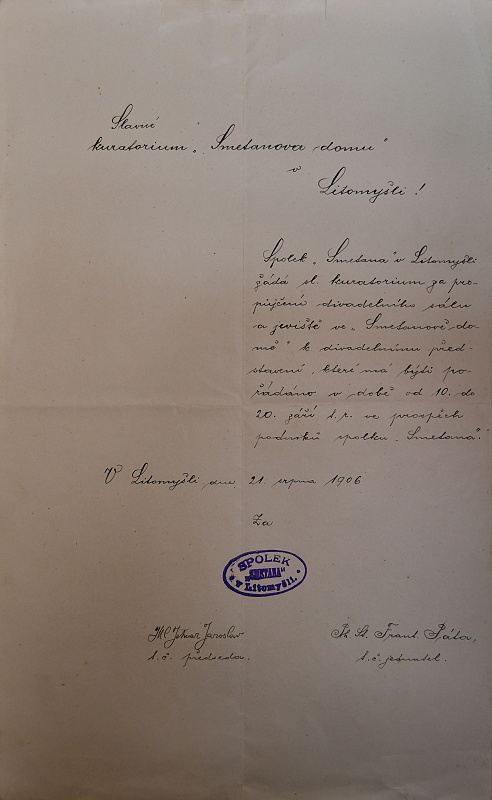 Slavné
kuratorium „Smetanova domu“
v
Litomyšli!
Spolek „Smetana“ v Litomyšli
žádá sl. kuratorium za pro-
půjčení divadelního sálu
a jeviště ve „Smetanově do-
mě“ k divadelnímu před-
stavení, které má býti po-
řádáno v době od 10. do
20. září t.r. ve prospěch
podniků spolku „Smetana“.
V Litomyšli dne 21. srpna 1906
Za
SPOLEK
„SMETANA“
v Litomyšli.
Jaroslav
t.č. předseda.
Frant. Páta,
t.č. jednatel.